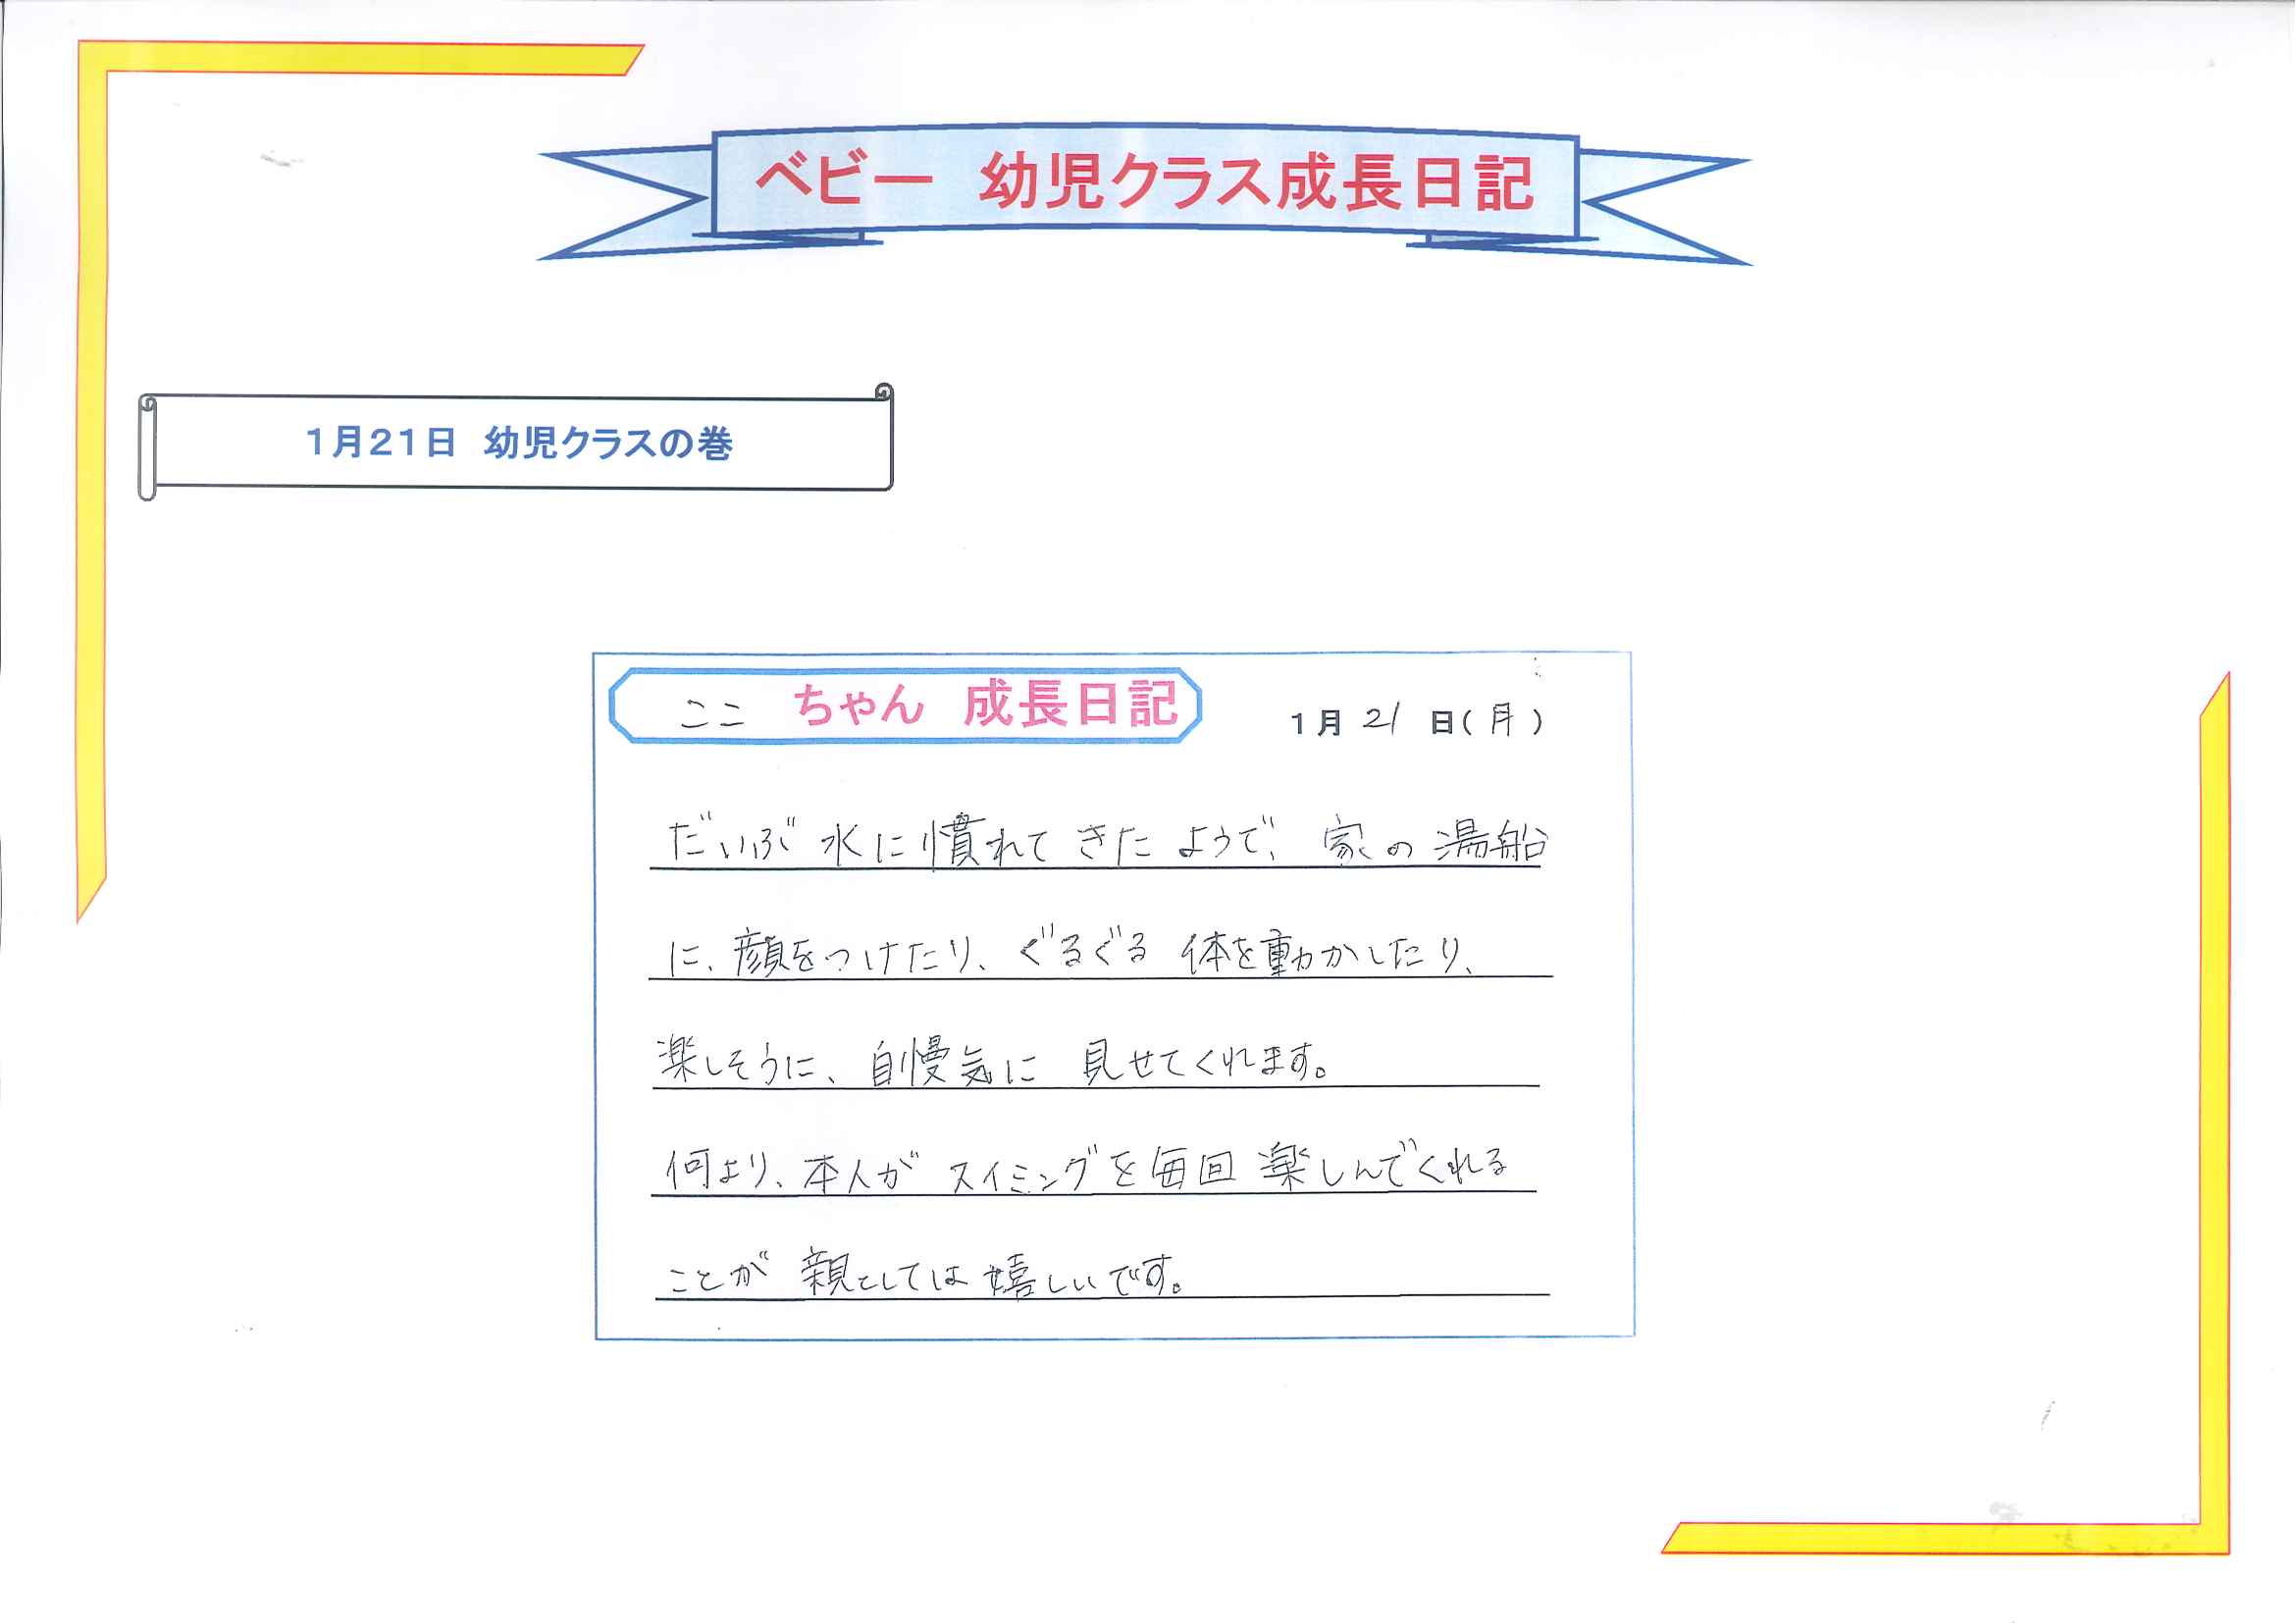 ベビー　幼児クラス成長日記
1月21日　幼児クラスの巻
ここ　ちゃん　成長日記
1月 21 日(月)
だいぶ 水に慣れて きた ようで、家の湯船
に、顔をつけたり、ぐるぐる 体を動かしたり、
楽しそうに、自慢気に 見せてくれます。
何より、本人が スイミングを毎回 楽しんでくれる
ことが 親としては嬉しいです。